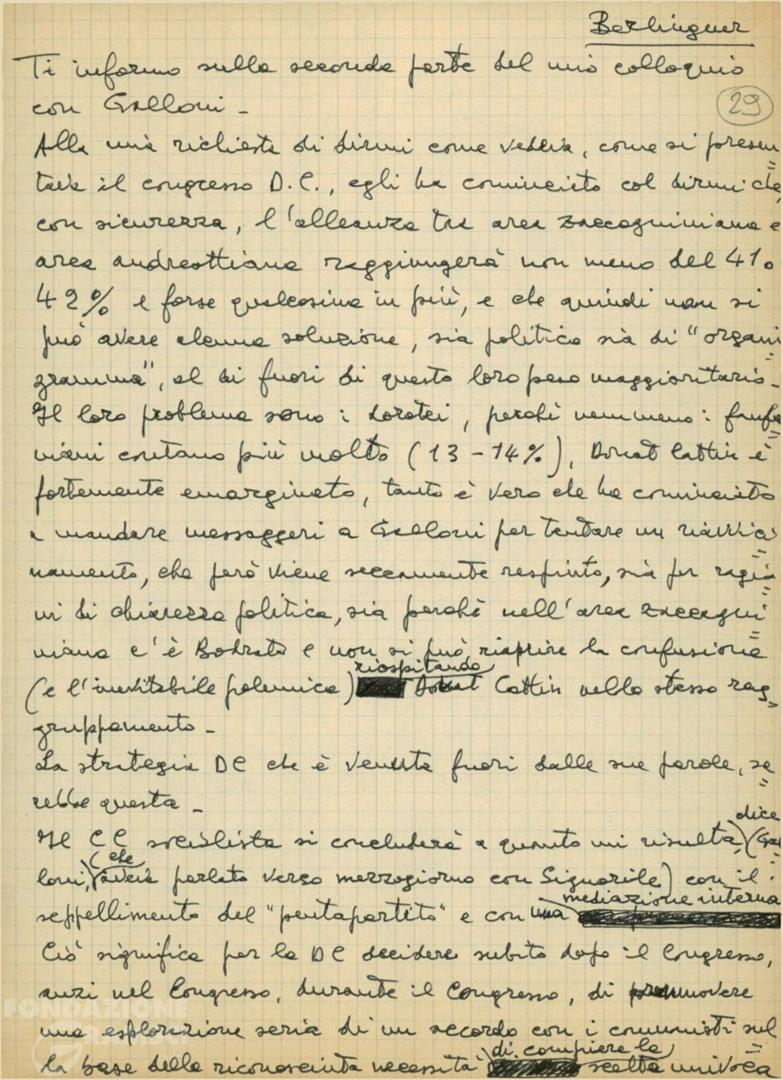 Berlinguer
Ti informo sulla seconda parte del mio colloquio
con Galloni -
29
Alla mia richiesta di dirmi come vedeva, come si presen=
tava il congresso D.C., egli ha cominciato col dirmi che,
con sicurezza, l'alleanza tra area zaccagniniana e
area andreottiana raggiungerà non meno del 41.
42% e forse qualcosina in più, e che quindi non si
può avere alcuna soluzione, sia politica sia di "organi
gramma", al di fuori di questo loro peso maggioritario -
Il loro problema sono i dorotei, perché nemmeno i fanfa=
niani contano più molto (13-14%), Donat Cattin è
fortemente emarginato, tanto è vero che ha cominciato
a mandare messaggeri a Galloni per tentare un riavvici=
namento, che però viene seccamente respinto, sia per ragio=
ni di chiarezza politica, sia perché nell'area zaccagni=
niana c'è Bodrato e non si può riaprire la confusione
(e l'inevitabile polemica) riospitando Donat Cattin nello stesso rag=
gruppamento -
La strategia DC che è venuta fuori dalle sue parole, sa=
rebbe questa -
Il CC socialista si concluderà a quanto mi risulta, dice (Gal=
loni, (che aveva parlato verso mezzogiorno con Signorile) con il
seppellimento del "pentapartito" e con una mediazione interna
Ciò significa per la DC decidere subito dopo il Congresso,
anzi nel Congresso, durante il Congresso, di promuovere
una esplorazione seria di un accordo con i comunisti sul
la base della riconosciuta necessità di compiere la scelta univoca
FONDAZIONE